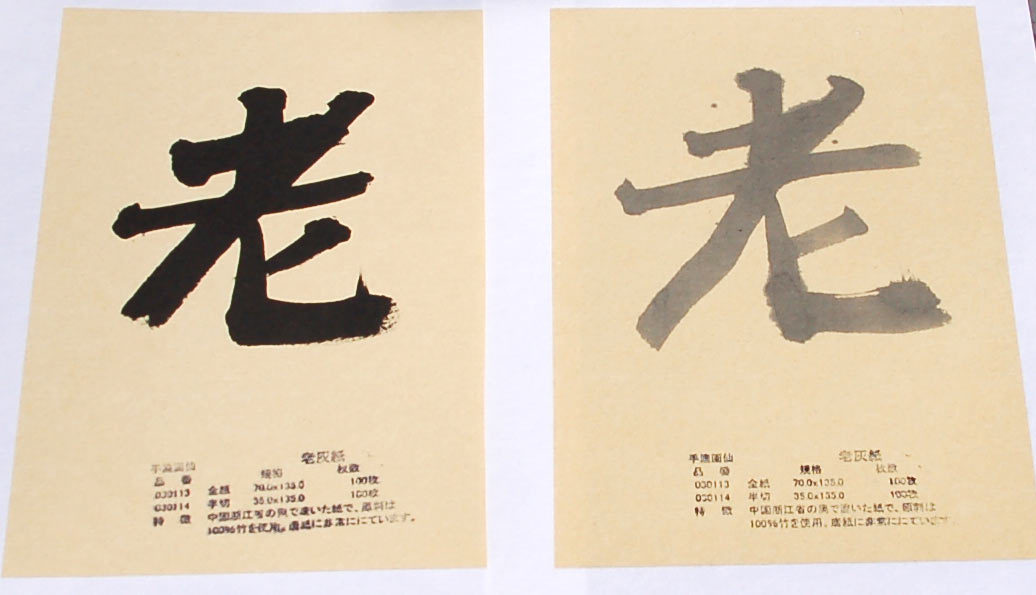 老
手漉画仙 老灰紙
品番 規格 枚数
030113 全紙 70.0x135.0 100枚
030114 半切 35.0x135.0 100枚
特徴 中国浙江省の奥で漉いた紙で、原料は
100%竹を使用。唐紙に非常ににています。
老
手漉画仙 老灰紙
品番 規格 枚数
030113 全紙 70.0x135.0 100枚
030114 半切 35.0x135.0 100枚
特徴 中国浙江省の奥で漉いた紙で、原料は
100%竹を使用。唐紙に非常ににています